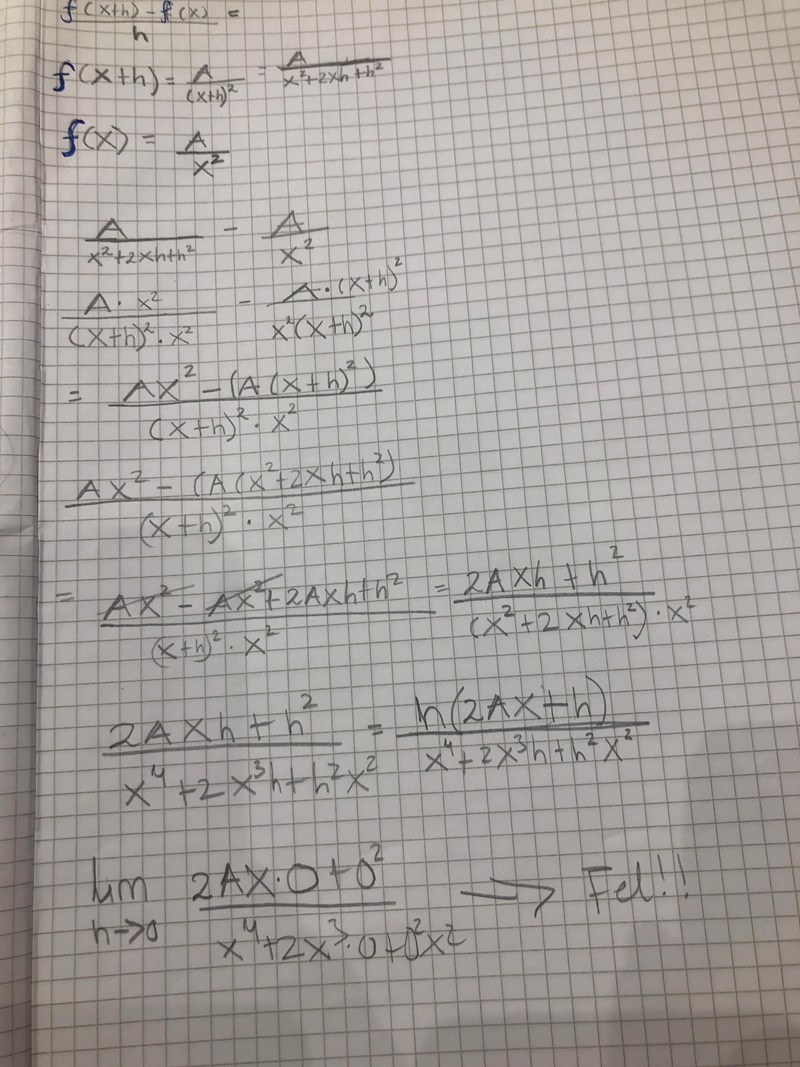 f(x+h) - f(x) / h =
f(x+h) = A/(x+h)² = A/(x²+2xh+h²)
f(x) = A/x²
A/(x²+2xh+h²) - A/x²
A·x²/((x+h)²·x²) - A·(x+h)²/(x²(x+h)²)
= (Ax² - (A(x+h)²))/((x+h)²·x²)
Ax² - (A(x²+2xh+h²)/((x+h)²·x²)
= (Ax² - Ax² + 2Axh+h²)/((x+h)²·x²) = (2Axh + h²)/((x²+2xh+h²)·x²)
(2Axh + h²)/(x⁴+2x³h+h²x²) = h(2Ax+h)/(x⁴+2x³h+h²x²)
lim h→0 (2Ax·0+0²)/(x⁴+2x³·0+0²x²) ⟹ Fel!!